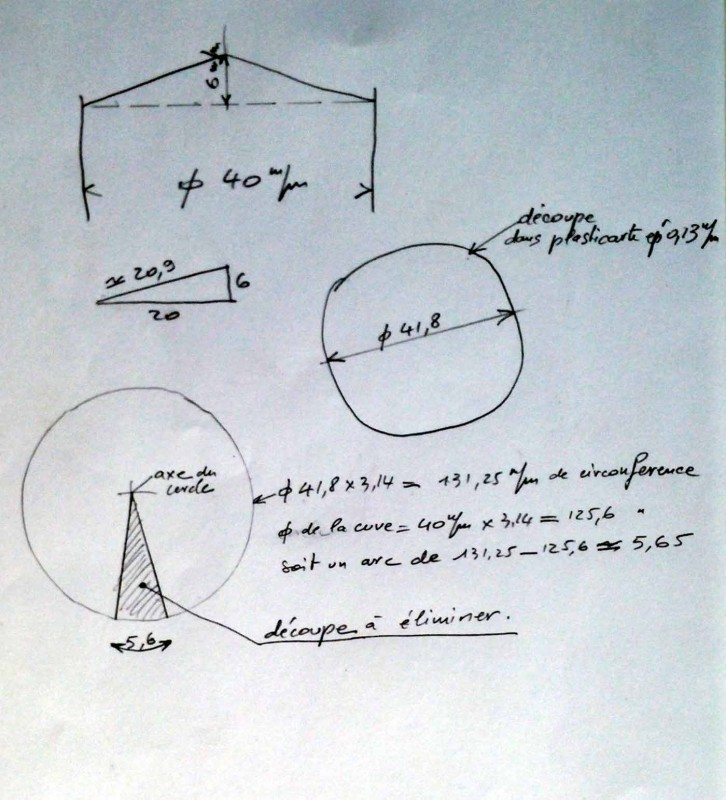 6 m/m
ϕ 40 m/m
découpe
dans plasticarte epr 0,13 m/m
≈ 20,9
6
20
ϕ 41,8
axe du
cercle
ϕ 41,8 x 3,14 = 131,25 m/m de circonférence
ϕ de la cuve = 40 m/m x 3,14 = 125,6 "
soit un arc de 131,25 - 125,6 ≈ 5,65
découpe à éliminer.
5,6